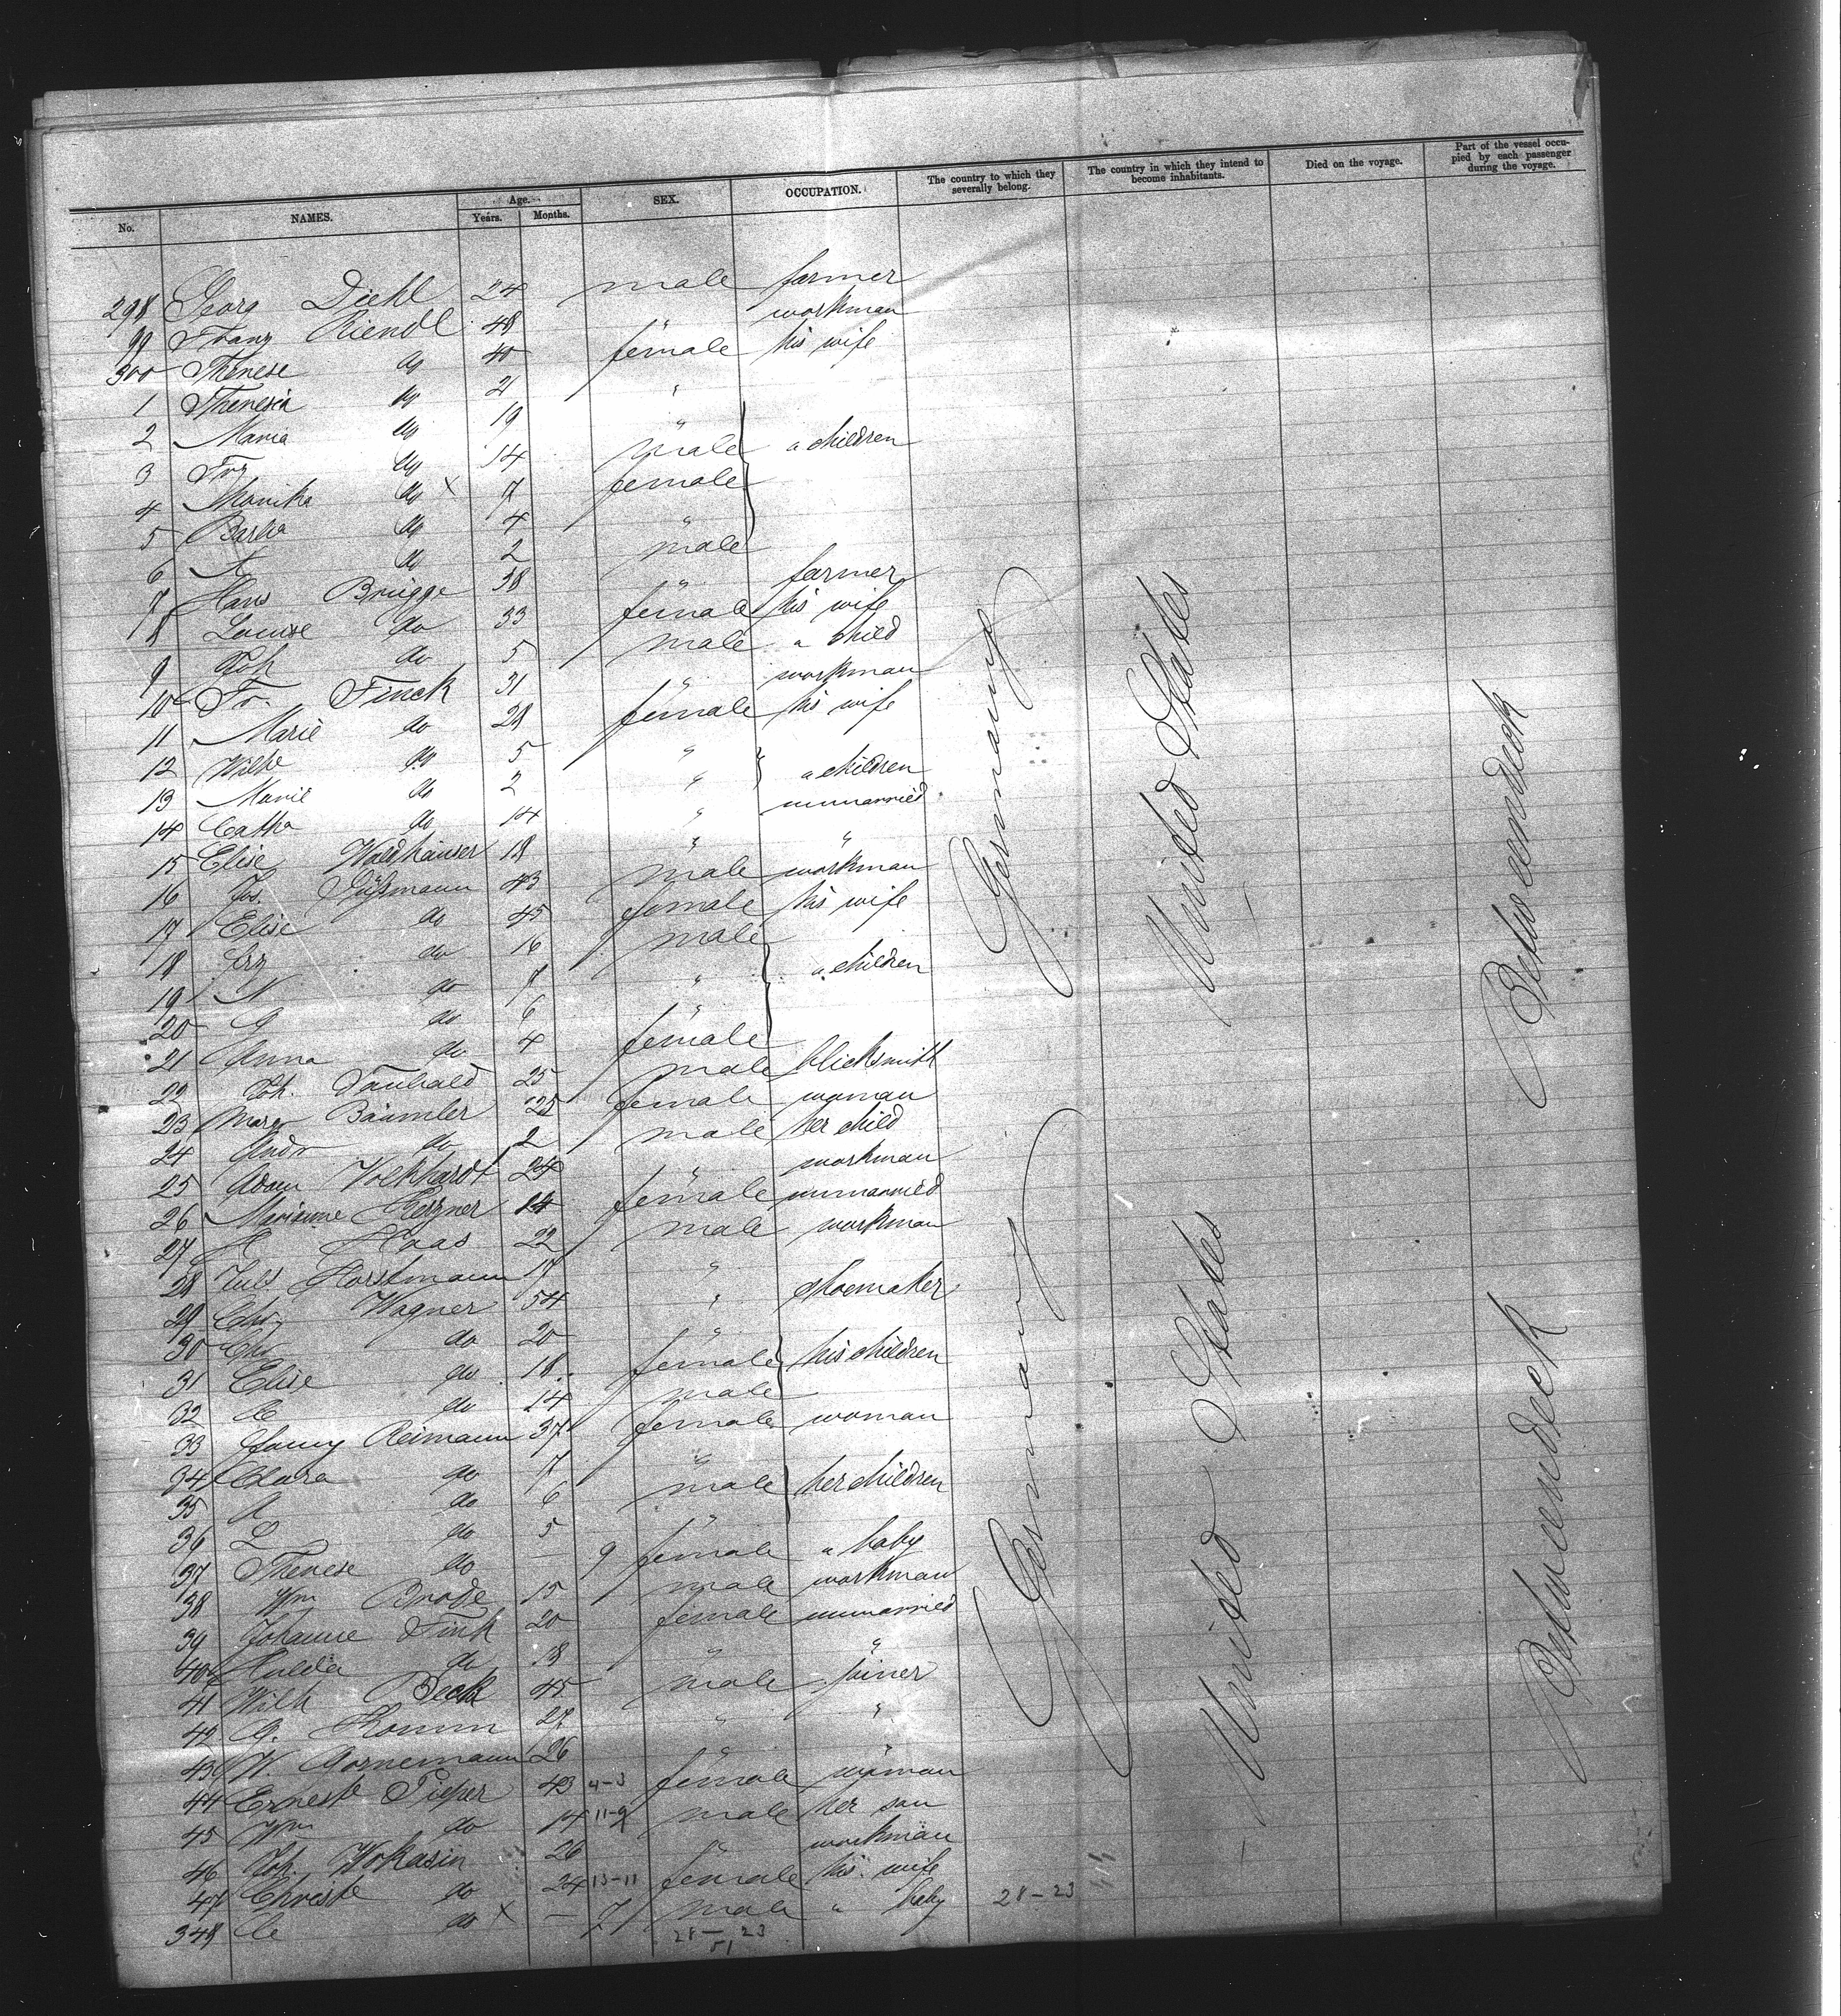 No. NAMES. Age. Years. Months. SEX. OCCUPATION. The country to which they severally belong. The country in which they intend to become inhabitants. Died on the voyage. Part of the vessel occupied by each passenger during the voyage.
298 Georg Diehl 24 male farmer
99 Franz Riendl 48 " workman
300 Therese do 40 female his wife
1 Theresia do 21 "
2 Maria do 19 "
3 Frz do 14 male a children
4 Monika do X 7 female
5 Barba do 4 "
6 A do 2 male
7 Hans Brügge 38 " farmer
8 Louise do 33 female his wife
9 Joh do 5 male a child
10 Fr. Finck 31 " workman
11 Marie do 28 female his wife
12 Wilhe do 5 "
13 Marie do 2 " a children
14 Catha do 14 " unmarried
15 Elise Waldhäuser 18 " "
16 Jos. Süßmann 43 male workman
17 Elise do 45 female his wife
18 Frz do 16 male
19 N do 7 " a children
20 G do 6 "
21 Anna do 4 female
22 Joh. Taubald 25 male blicksmith
23 Marg Bäumler 25 female woman
24 Andr do 2 male her child
25 Adam Volkhardt 24 " workman
26 Marianne Herzner 14 female unmarried
27 H Haas 22 male workman
28 Juls Horstmann 17 "
29 Chr Wagner 54 " shoemaker
30 Chr do 20 "
31 Elise do 18 female his children
32 C do 14 male
33 Fanny Reimann 37 female woman
34 Clara do 7 "
35 A do 6 male her children
36 L do 5 "
37 Therese do — 9 female a baby
38 Wm Brode 15 male workman
39 Johanne Fink 20 female unmarried
40 Hulda do 18 " "
41 Wilh Beck 45 male joiner
42 G. Thomm 27 " "
43 W. Bornemann 26 " "
44 Erneste Pieper 43 4-3 female woman
45 Wm do 14 11-9 male her son
46 Joh. Wokasin 26 " workman
47 Christe do 24 13-11 female his wife
348 C do X — 7 male a baby 28-23
28-23
51
Germany
United States
Betweendeck
Germany
United States
Betweendeck